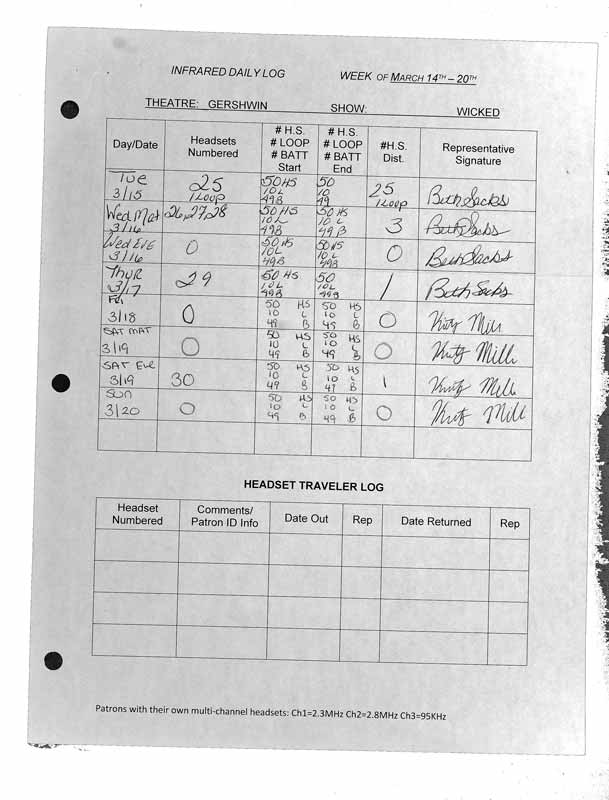 INFRARED DAILY LOG WEEK OF MARCH 14TH – 20TH
THEATRE: GERSHWIN SHOW: WICKED
Day/Date Headsets Numbered # H.S. # LOOP # BATT Start # H.S. # LOOP # BATT End #H.S. Dist. Representative Signature
Tue 3/15 25 1 Loop 50 HS 10 L 49 B 50 10 49 25 1 Loop Beth Sacks
Wed Mat 3/16 26,27,28 50 HS 10 L 49 B 50 HS 10 L 49 B 3 Beth Sacks
Wed Eve 3/16 0 50 HS 10 L 49 B 50 HS 10 L 49 B 0 Beth Sacks
Thur 3/17 29 50 HS 10 L 49 B 50 10 L 49 B 1 Beth Sacks
Fri 3/18 0 50 HS 10 L 49 B 50 HS 10 L 49 B 0
SAT MAT 3/19 0 50 HS 10 L 49 B 50 HS 10 L 49 B 0
SAT Eve 3/19 30 50 HS 10 L 49 B 50 HS 10 L B 1
SUN 3/20 0 50 HS 10 L 49 B 50 HS 10 L 49 B 0
HEADSET TRAVELER LOG
Headset Numbered Comments/ Patron ID Info Date Out Rep Date Returned Rep
Patrons with their own multi-channel headsets: Ch1=2.3MHz Ch2=2.8MHz Ch3=95KHz